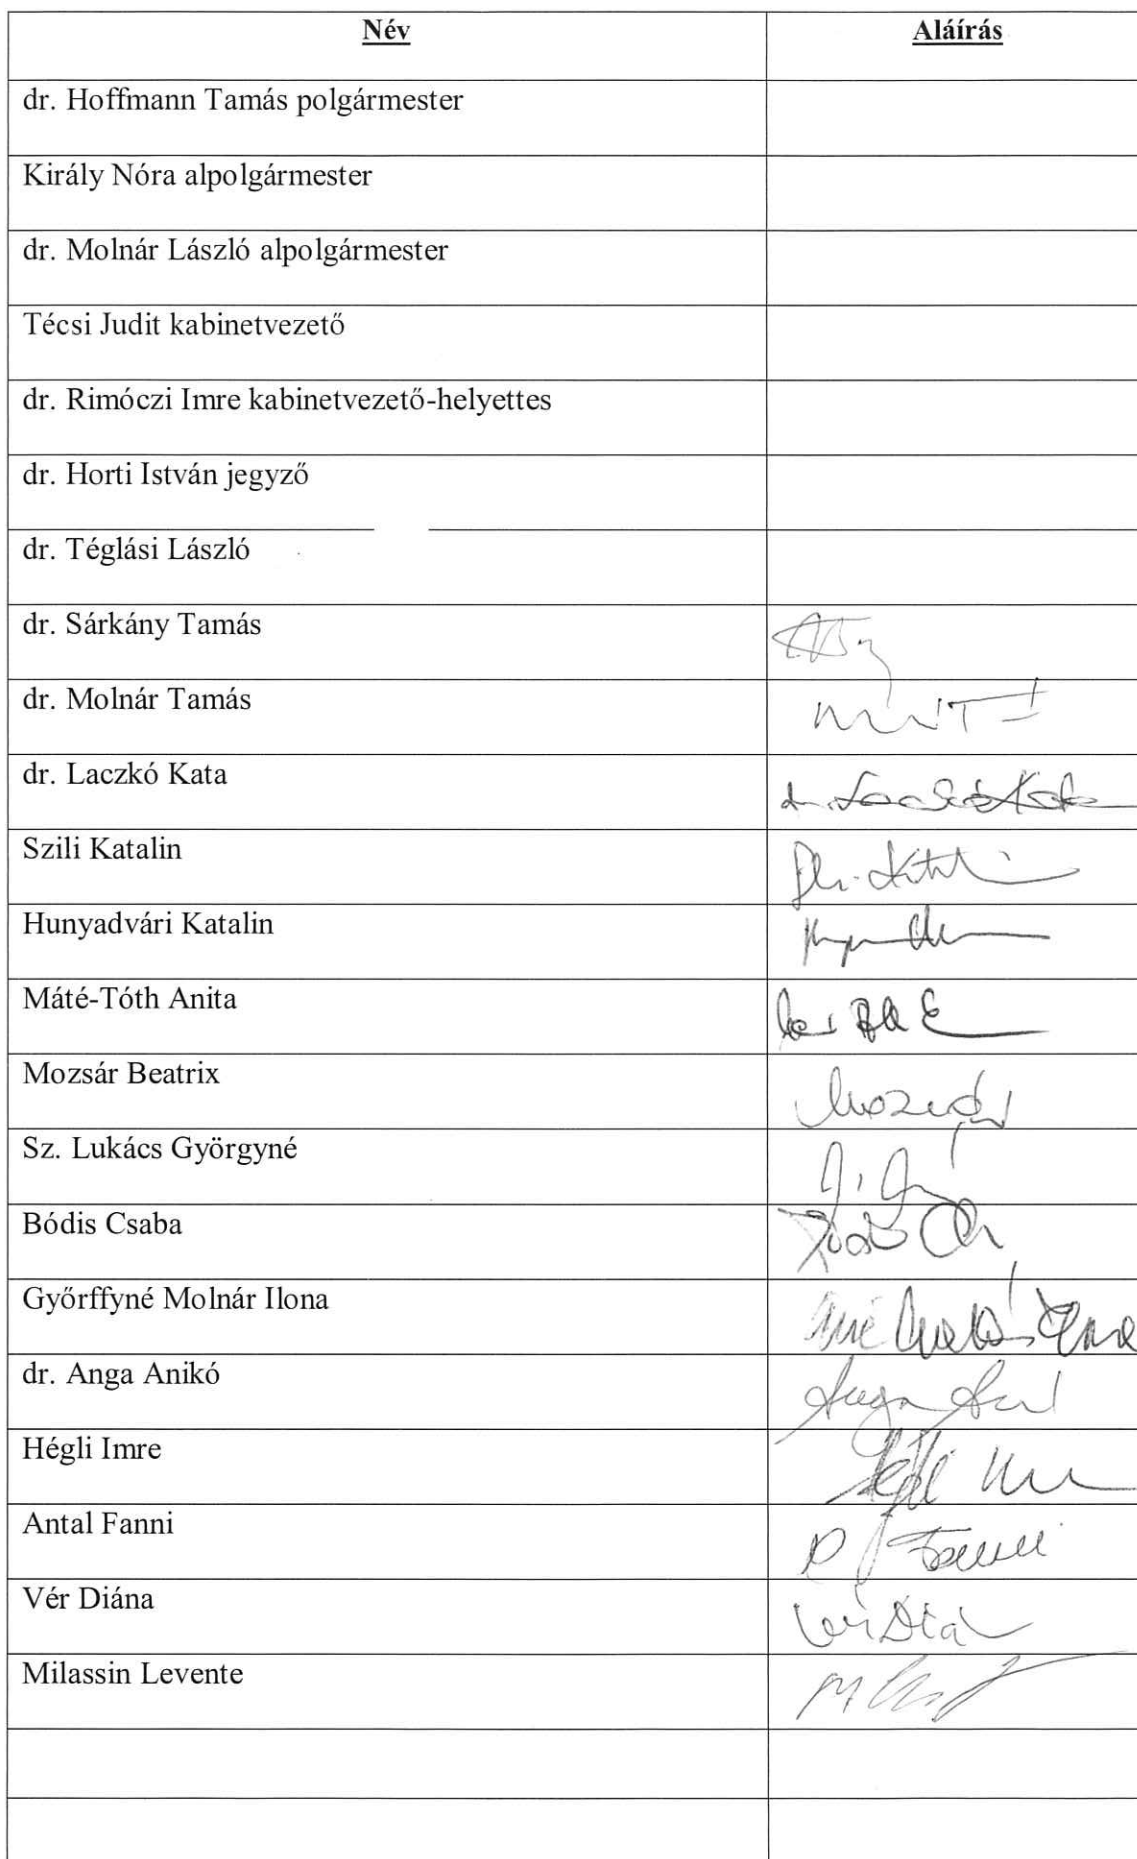 Név Aláírás
dr. Hoffmann Tamás polgármester
Király Nóra alpolgármester
dr. Molnár László alpolgármester
Técsi Judit kabinetvezető
dr. Rimóczi Imre kabinetvezető-helyettes
dr. Horti István jegyző
dr. Téglási László
dr. Sárkány Tamás
dr. Molnár Tamás
dr. Laczkó Kata dr. Laczkó Kata
Szili Katalin
Hunyadvári Katalin
Máté-Tóth Anita
Mozsár Beatrix Mozsár
Sz. Lukács Györgyné
Bódis Csaba
Győrffyné Molnár Ilona
dr. Anga Anikó
Hégli Imre
Antal Fanni Fanni
Vér Diána
Milassin Levente